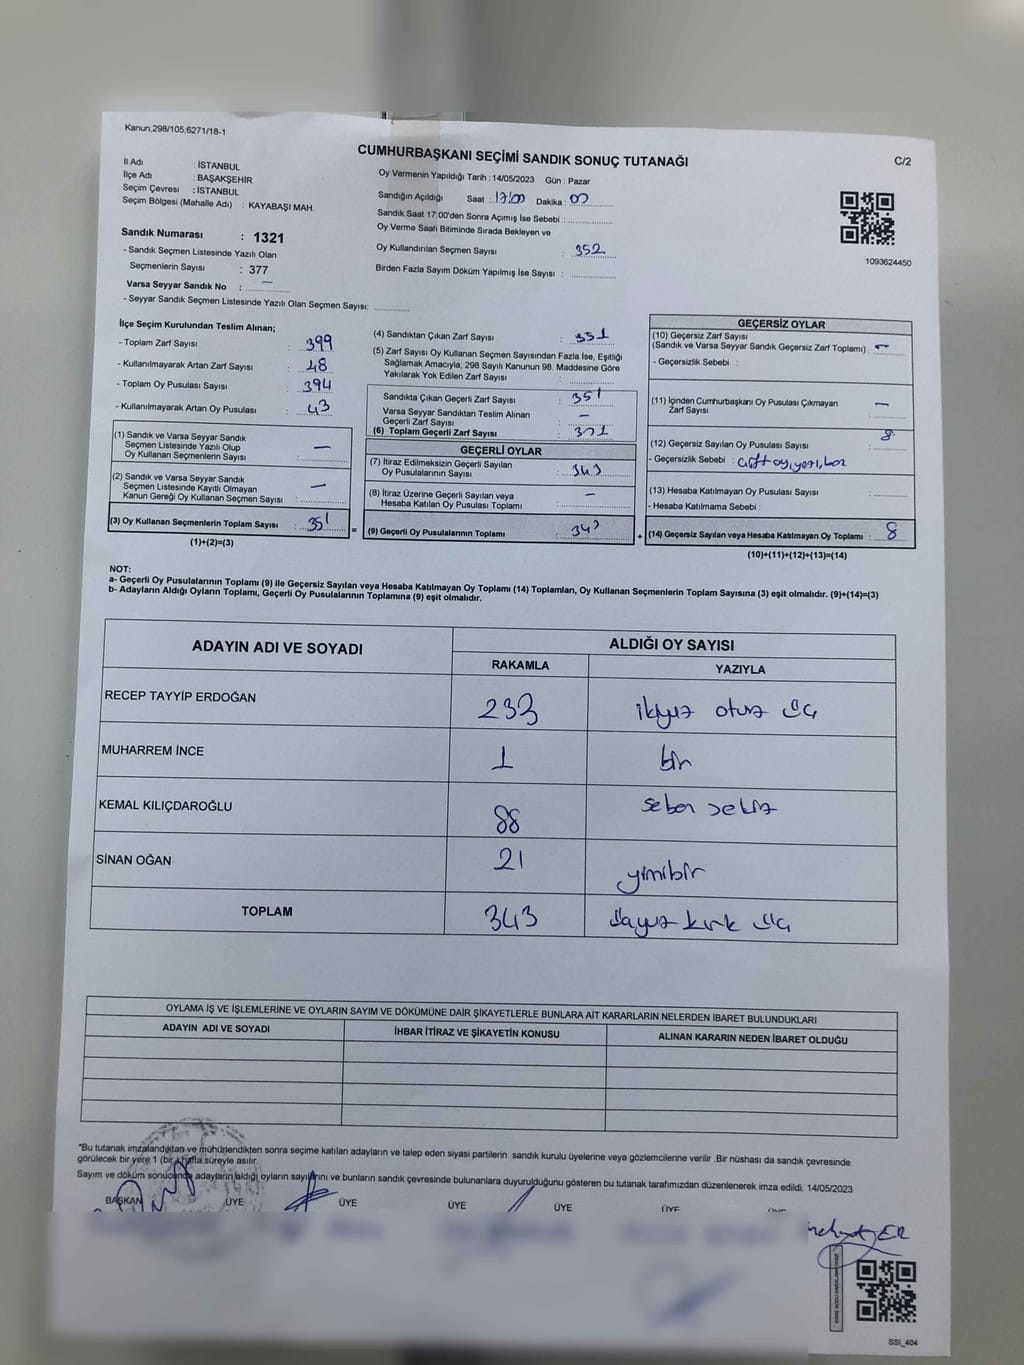 Kanun,298/105,6271/18-1
CUMHURBAŞKANI SEÇİMİ SANDIK SONUÇ TUTANAĞI
C/2
İl Adı : İSTANBUL
İlçe Adı : BAŞAKŞEHİR
Seçim Çevresi : İSTANBUL
Seçim Bölgesi (Mahalle Adı) : KAYABAŞI MAH.
Sandık Numarası : 1321
- Sandık Seçmen Listesinde Yazılı Olan
Seçmenlerin Sayısı : 377
Varsa Seyyar Sandık No : —
- Seyyar Sandık Seçmen Listesinde Yazılı Olan Seçmen Sayısı:
Oy Vermenin Yapıldığı Tarih : 14/05/2023 Gün : Pazar
Sandığın Açıldığı Saat : 17:00 Dakika : 00
Sandık Saat 17:00'den Sonra Açımış İse Sebebi :
Oy Verme Saati Bitiminde Sırada Bekleyen ve
Oy Kullandırılan Seçmen Sayısı : 352
Birden Fazla Sayım Döküm Yapılmış İse Sayısı :
1093624450
İlçe Seçim Kurulundan Teslim Alınan;
- Toplam Zarf Sayısı : 399
- Kullanılmayarak Artan Zarf Sayısı : 48
- Toplam Oy Pusulası Sayısı : 394
- Kullanılmayarak Artan Oy Pusulası : 43
(1) Sandık ve Varsa Seyyar Sandık
Seçmen Listesinde Yazılı Olup
Oy Kullanan Seçmenlerin Sayısı : —
(2) Sandık ve Varsa Seyyar Sandık
Seçmen Listesinde Kayıtlı Olmayan
Kanun Gereği Oy Kullanan Seçmen Sayısı : —
(3) Oy Kullanan Seçmenlerin Toplam Sayısı : 351
(1)+(2)=(3)
=
(4) Sandıktan Çıkan Zarf Sayısı : 351
(5) Zarf Sayısı Oy Kullanan Seçmen Sayısından Fazla İse, Eşitliği
Sağlamak Amacıyla; 298 Sayılı Kanunun 98. Maddesine Göre
Yakılarak Yok Edilen Zarf Sayısı :
Sandıkta Çıkan Geçerli Zarf Sayısı : 351
Varsa Seyyar Sandıktan Teslim Alınan
Geçerli Zarf Sayısı : —
(6) Toplam Geçerli Zarf Sayısı : 351
GEÇERLİ OYLAR
(7) İtiraz Edilmeksizin Geçerli Sayılan
Oy Pusulalarının Sayısı : 343
(8) İtiraz Üzerine Geçerli Sayılan veya
Hesaba Katılan Oy Pusulası Toplamı : —
(9) Geçerli Oy Pusulalarının Toplamı : 343
+
GEÇERSİZ OYLAR
(10) Geçersiz Zarf Sayısı
(Sandık ve Varsa Seyyar Sandık Geçersiz Zarf Toplamı) : —
- Geçersizlik Sebebi :
(11) İçinden Cumhurbaşkanı Oy Pusulası Çıkmayan
Zarf Sayısı : —
(12) Geçersiz Sayılan Oy Pusulası Sayısı : 8
- Geçersizlik Sebebi : çift oy, yazı, boz
(13) Hesaba Katılmayan Oy Pusulası Sayısı :
- Hesaba Katılmama Sebebi :
(14) Geçersiz Sayılan veya Hesaba Katılmayan Oy Toplamı : 8
(10)+(11)+(12)+(13)=(14)
NOT:
a- Geçerli Oy Pusulalarının Toplamı (9) ile Geçersiz Sayılan veya Hesaba Katılmayan Oy Toplamı (14) Toplamları, Oy Kullanan Seçmenlerin Toplam Sayısına (3) eşit olmalıdır. (9)+(14)=(3)
b- Adayların Aldığı Oyların Toplamı, Geçerli Oy Pusulalarının Toplamına (9) eşit olmalıdır.
ADAYIN ADI VE SOYADI
ALDIĞI OY SAYISI
RAKAMLA YAZIYLA
RECEP TAYYİP ERDOĞAN 233 ikiyüz otuz üç
MUHARREM İNCE 1 bir
KEMAL KILIÇDAROĞLU 88 seksen sekiz
SİNAN OĞAN 21 yirmibir
TOPLAM 343 üçyüz kırk üç
OYLAMA İŞ VE İŞLEMLERİNE VE OYLARIN SAYIM VE DÖKÜMÜNE DAİR ŞİKAYETLERLE BUNLARA AİT KARARLARIN NELERDEN İBARET BULUNDUKLARI
ADAYIN ADI VE SOYADI İHBAR İTİRAZ VE ŞİKAYETİN KONUSU ALINAN KARARIN NEDEN İBARET OLDUĞU
*Bu tutanak imzalandıktan ve mühürlendikten sonra seçime katılan adayların ve talep eden siyasi partilerin sandık kurulu üyelerine veya gözlemcilerine verilir .Bir nüshası da sandık çevresinde
görülecek bir yere 1 (bir) hafta süreyle asılır.
Sayım ve döküm sonucunda adayların aldığı oyların sayılarını ve bunların sandık çevresinde bulunanlara duyurulduğunu gösteren bu tutanak tarafımızdan düzenlenerek imza edildi. 14/05/2023
BAŞKAN ÜYE ÜYE ÜYE ÜYE ÜYE
SSİ_404